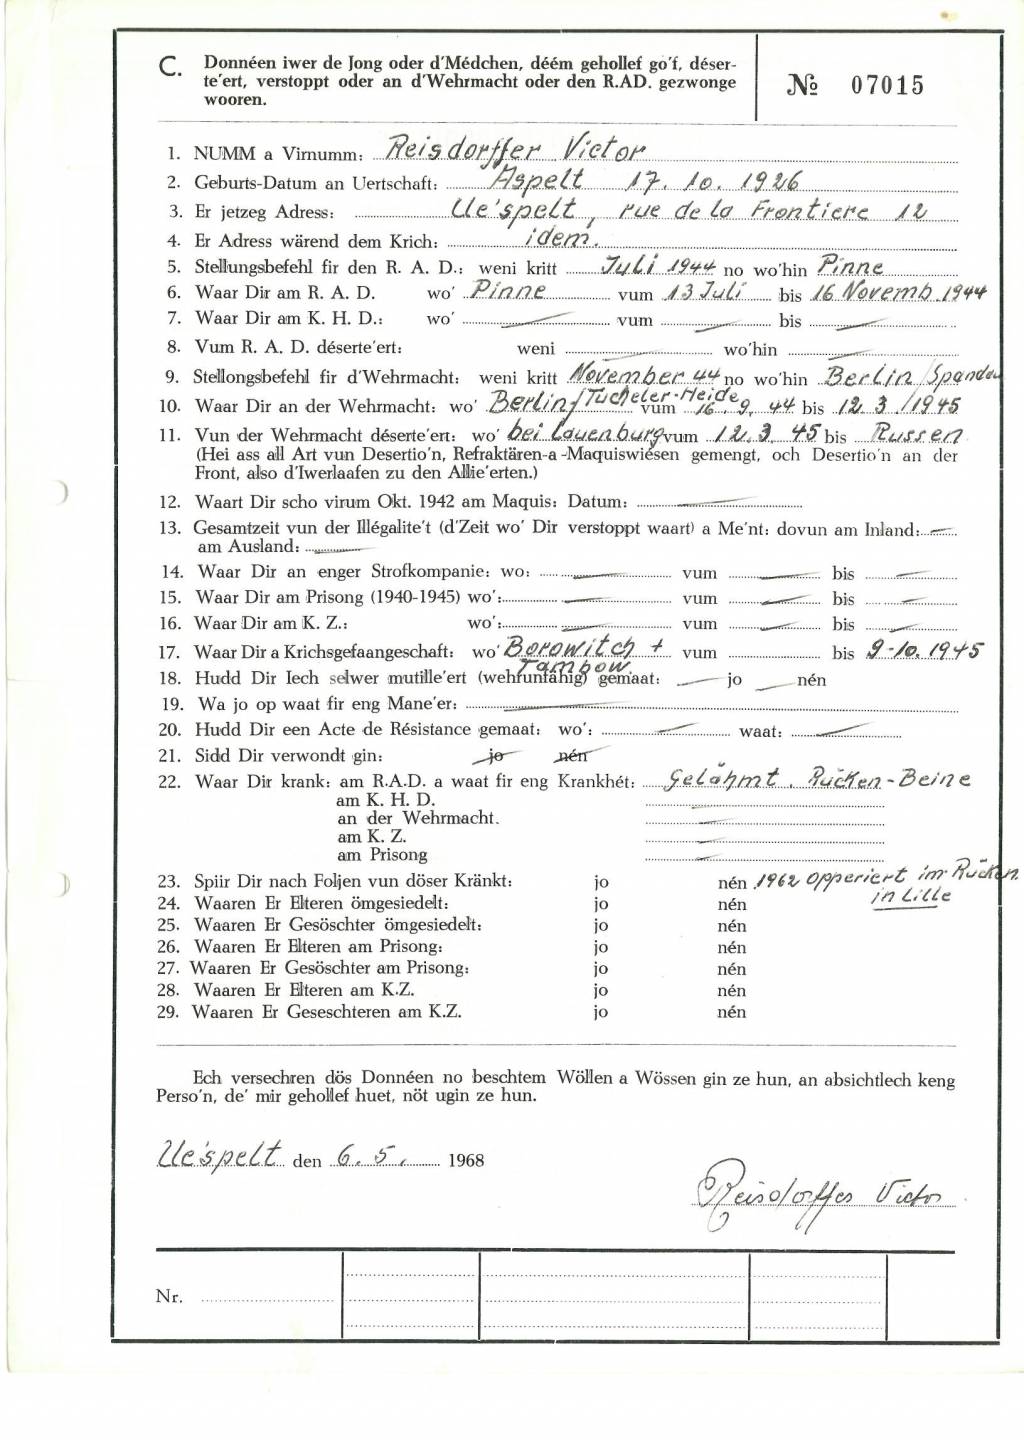 C. Donnéen iwer de Jong oder d'Médchen, déém gehollef go'f, déser-
te'ert, verstoppt oder an d'Wehrmacht oder den R.AD. gezwonge
wooren.
№ 07015
1. NUMM a Virnumm: Reisdorffer Victor
2. Geburts-Datum an Uertschaft: Aspelt 17. 10. 1926
3. Er jetzeg Adress: Ue'spelt, rue de la Frontiere 12
4. Er Adress wärend dem Krich: idem.
5. Stellungsbefehl fir den R. A. D.: weni kritt Juli 1944 no wo'hin Pinne
6. Waar Dir am R. A. D. wo' Pinne vum 13 Juli bis 16 Novemb. 1944
7. Waar Dir am K. H. D.: wo' — vum — bis —
8. Vum R. A. D. déserte'ert: weni — wo'hin —
9. Stellongsbefehl fir d'Wehrmacht: weni kritt November 44 no wo'hin Berlin/Spandau
10. Waar Dir an der Wehrmacht: wo' Berlin/Tucheler-Heide vum 16. 9. 44 bis 12. 3. 1945
11. Vun der Wehrmacht déserte'ert: wo' bei Lauenburg vum 12. 3. 45 bis Russen
(Hei ass all Art vun Desertio'n, Refraktären-a-Maquiswiésen gemengt, och Desertio'n an der
Front, also d'Iwerlaafen zu den Allie'erten.)
12. Waart Dir scho virum Okt. 1942 am Maquis: Datum: —
13. Gesamtzeit vun der Illégalite't (d'Zeit wo' Dir verstoppt waart) a Me'nt: dovun am Inland: —
am Ausland: —
14. Waar Dir an enger Strofkompanie: wo: — vum — bis —
15. Waar Dir am Prisong (1940-1945) wo': — vum — bis —
16. Waar Dir am K. Z.: wo': — vum — bis —
17. Waar Dir a Krichsgefaangeschaft: wo' Borowitch + Tambow vum bis 9-10. 1945
18. Hudd Dir Iech selwer mutille'ert (wehrunfähig) gemaat: — jo — nén
19. Wa jo op waat fir eng Mane'er: —
20. Hudd Dir een Acte de Résistance gemaat: wo': — waat: —
21. Sidd Dir verwondt gin: jo nén
22. Waar Dir krank: am R.A.D. a waat fir eng Krankhét: Gelähmt. Rücken-Beine
am K. H. D. —
an der Wehrmacht. —
am K. Z. —
am Prisong —
23. Spiir Dir nach Foljen vun döser Kränkt: jo nén 1962 opperiert im Rücken
in Lille
24. Waaren Er Elteren ömgesiedelt: jo nén
25. Waaren Er Gesöschter ömgesiedelt: jo nén
26. Waaren Er Elteren am Prisong: jo nén
27. Waaren Er Gesöschter am Prisong: jo nén
28. Waaren Er Elteren am K.Z. jo nén
29. Waaren Er Geseschteren am K.Z. jo nén
Ech versechren dös Donnéen no beschtem Wöllen a Wössen gin ze hun, an absichtlech keng
Perso'n, de' mir gehollef huet, nöt ugin ze hun.
Ue'spelt den 6. 5. 1968
Reisdorffer Victor
Nr.